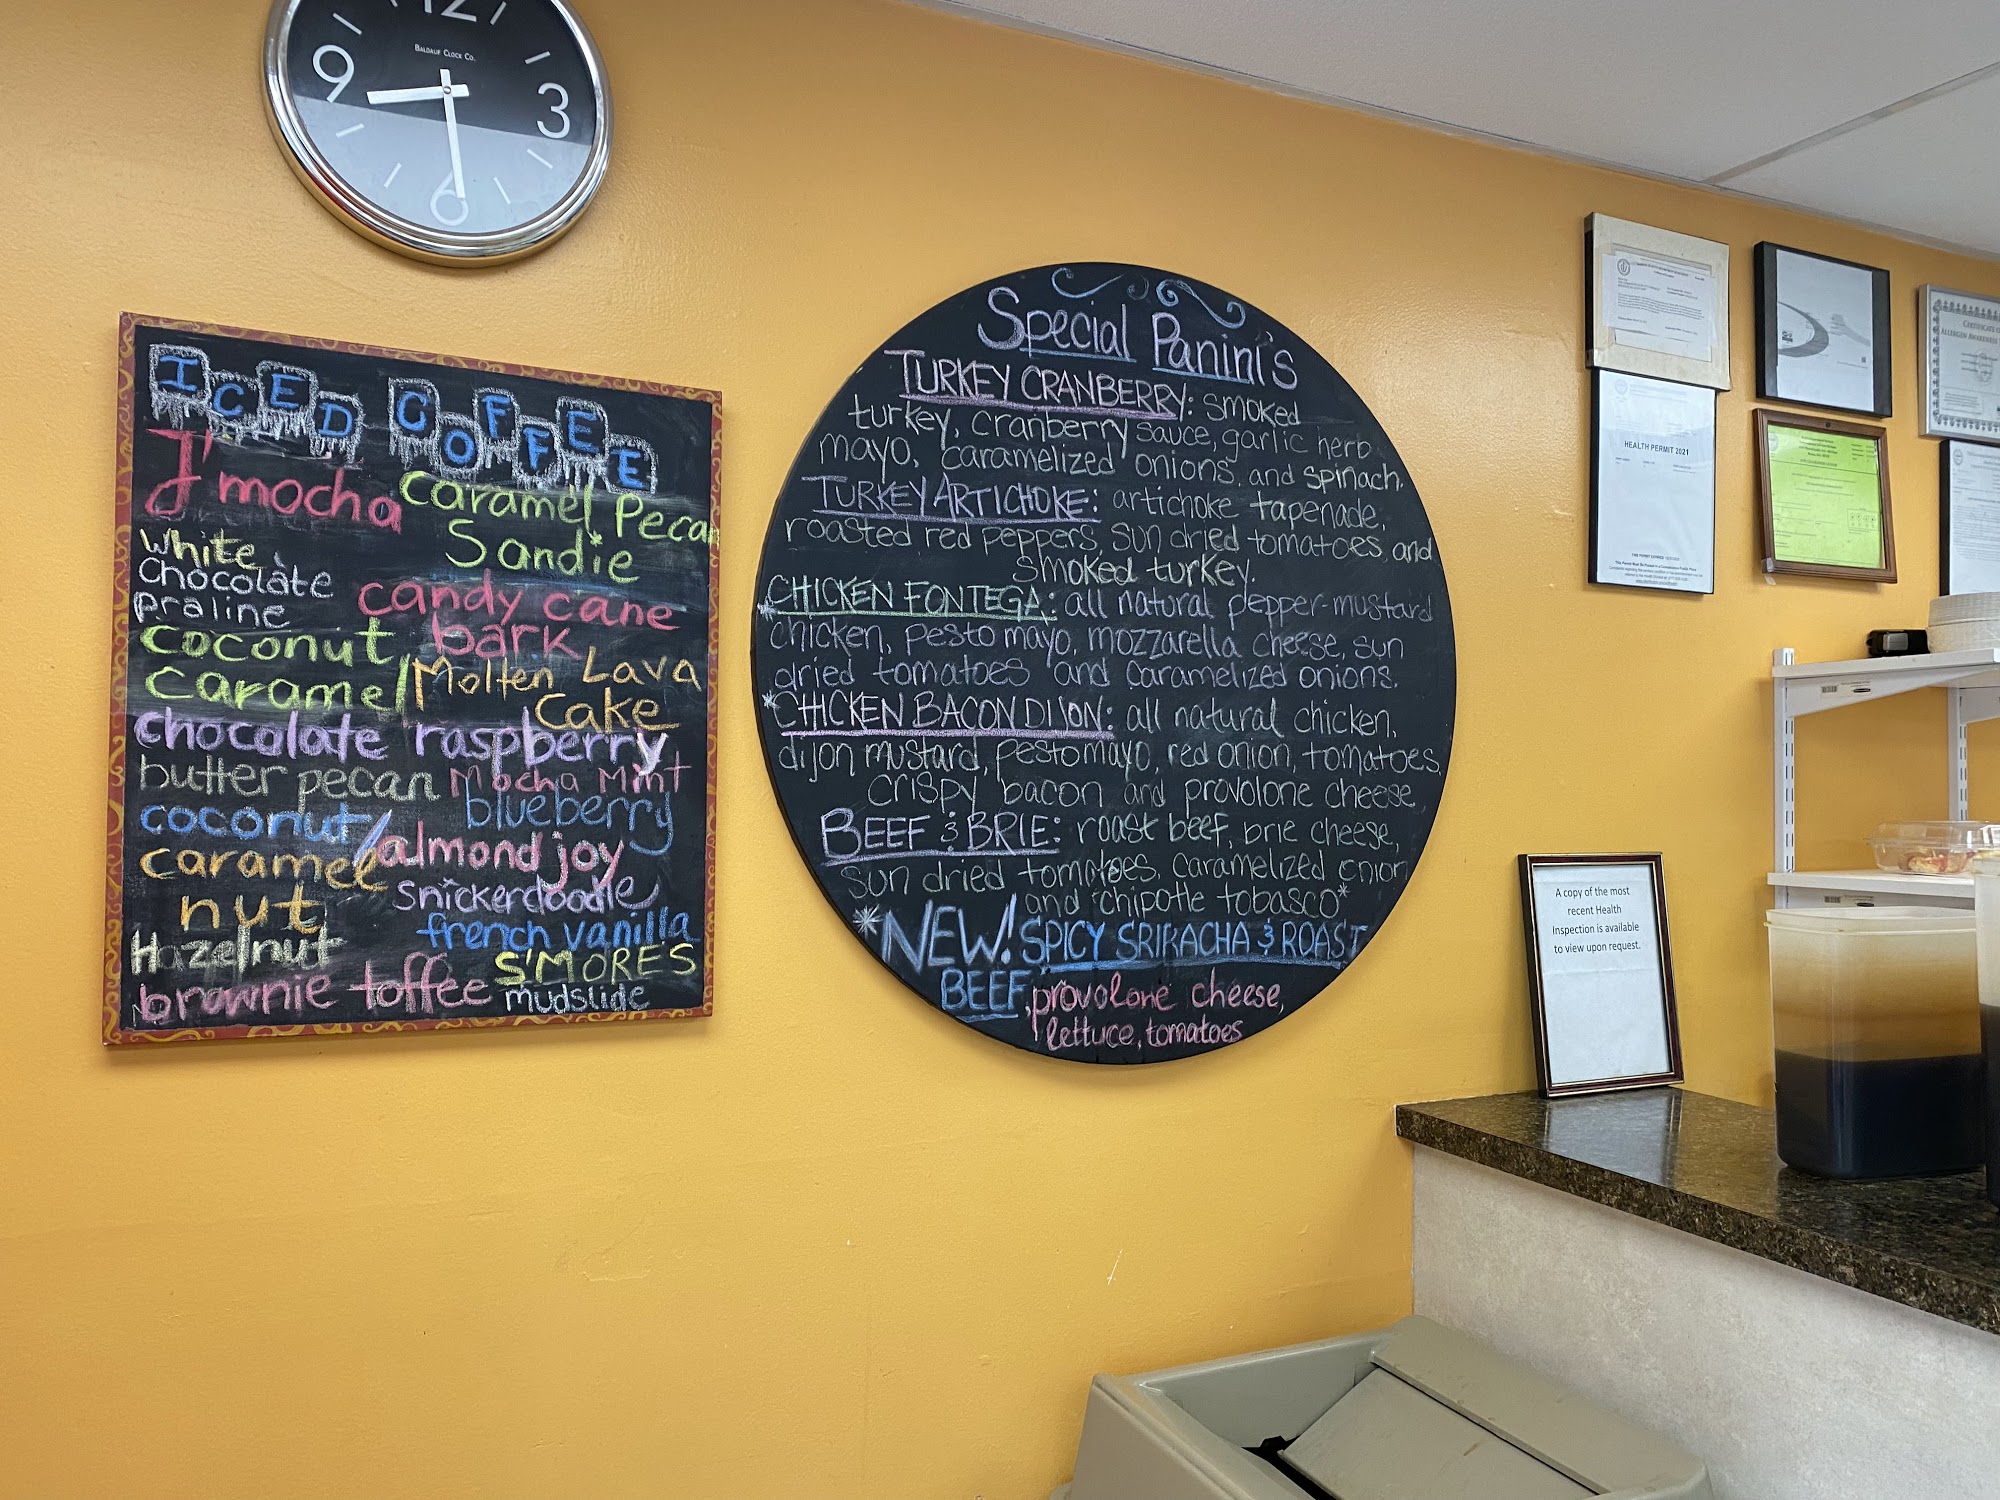 12
9
3
6
BALDAUF CLOCK CO.
ICED COFFEE
J'mocha
caramel Pecan
Sandie
White
Chocolate
praline
candy cane
bark
coconut
caramel
Molten Lava
Cake
chocolate raspberry
butter pecan
Mocha Mint
blueberry
coconut/
caramel
nut
almond joy
snickerdoodle
french vanilla
Hazelnut
S'MORES
brownie toffee
mudslide
Special Panini's
TURKEY CRANBERRY: smoked
turkey, cranberry sauce, garlic herb
mayo, caramelized onions, and spinach.
TURKEY ARTICHOKE: artichoke tapenade,
roasted red peppers, sun dried tomatoes, and
smoked turkey.
*CHICKEN FONTEGA: all natural pepper-mustard
chicken, pesto mayo, mozzarella cheese, sun
dried tomatoes and caramelized onions.
*CHICKEN BACON DIJON: all natural chicken,
dijon mustard, pesto mayo, red onion, tomatoes,
crispy bacon and provolone cheese
BEEF & BRIE: roast beef, brie cheese,
sun dried tomatoes, caramelized onion
and chipotle tobasco*
*NEW! SPICY SRIRACHA & ROAST
BEEF, provolone cheese,
lettuce, tomatoes
HEALTH PERMIT 2021
CERTIFICATE OF
ALLERGEN AWARENESS
A copy of the most
recent Health
Inspection is available
to view upon request.